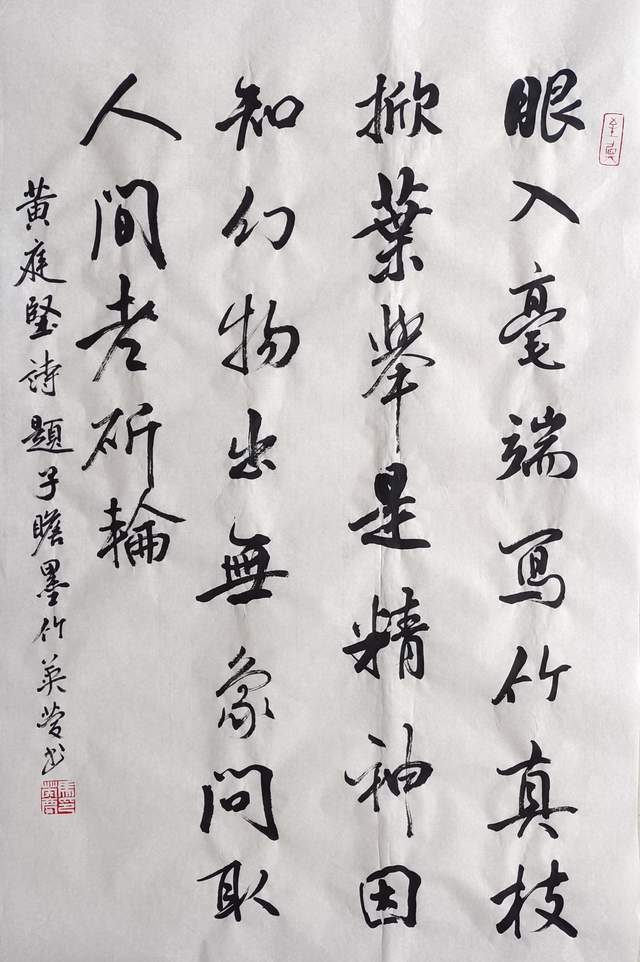 眼入毫端写竹真枝
掀葉舉是精神因
知幻物出無象問取
人間老斫輪
黄庭堅詩題子瞻墨竹英莹书